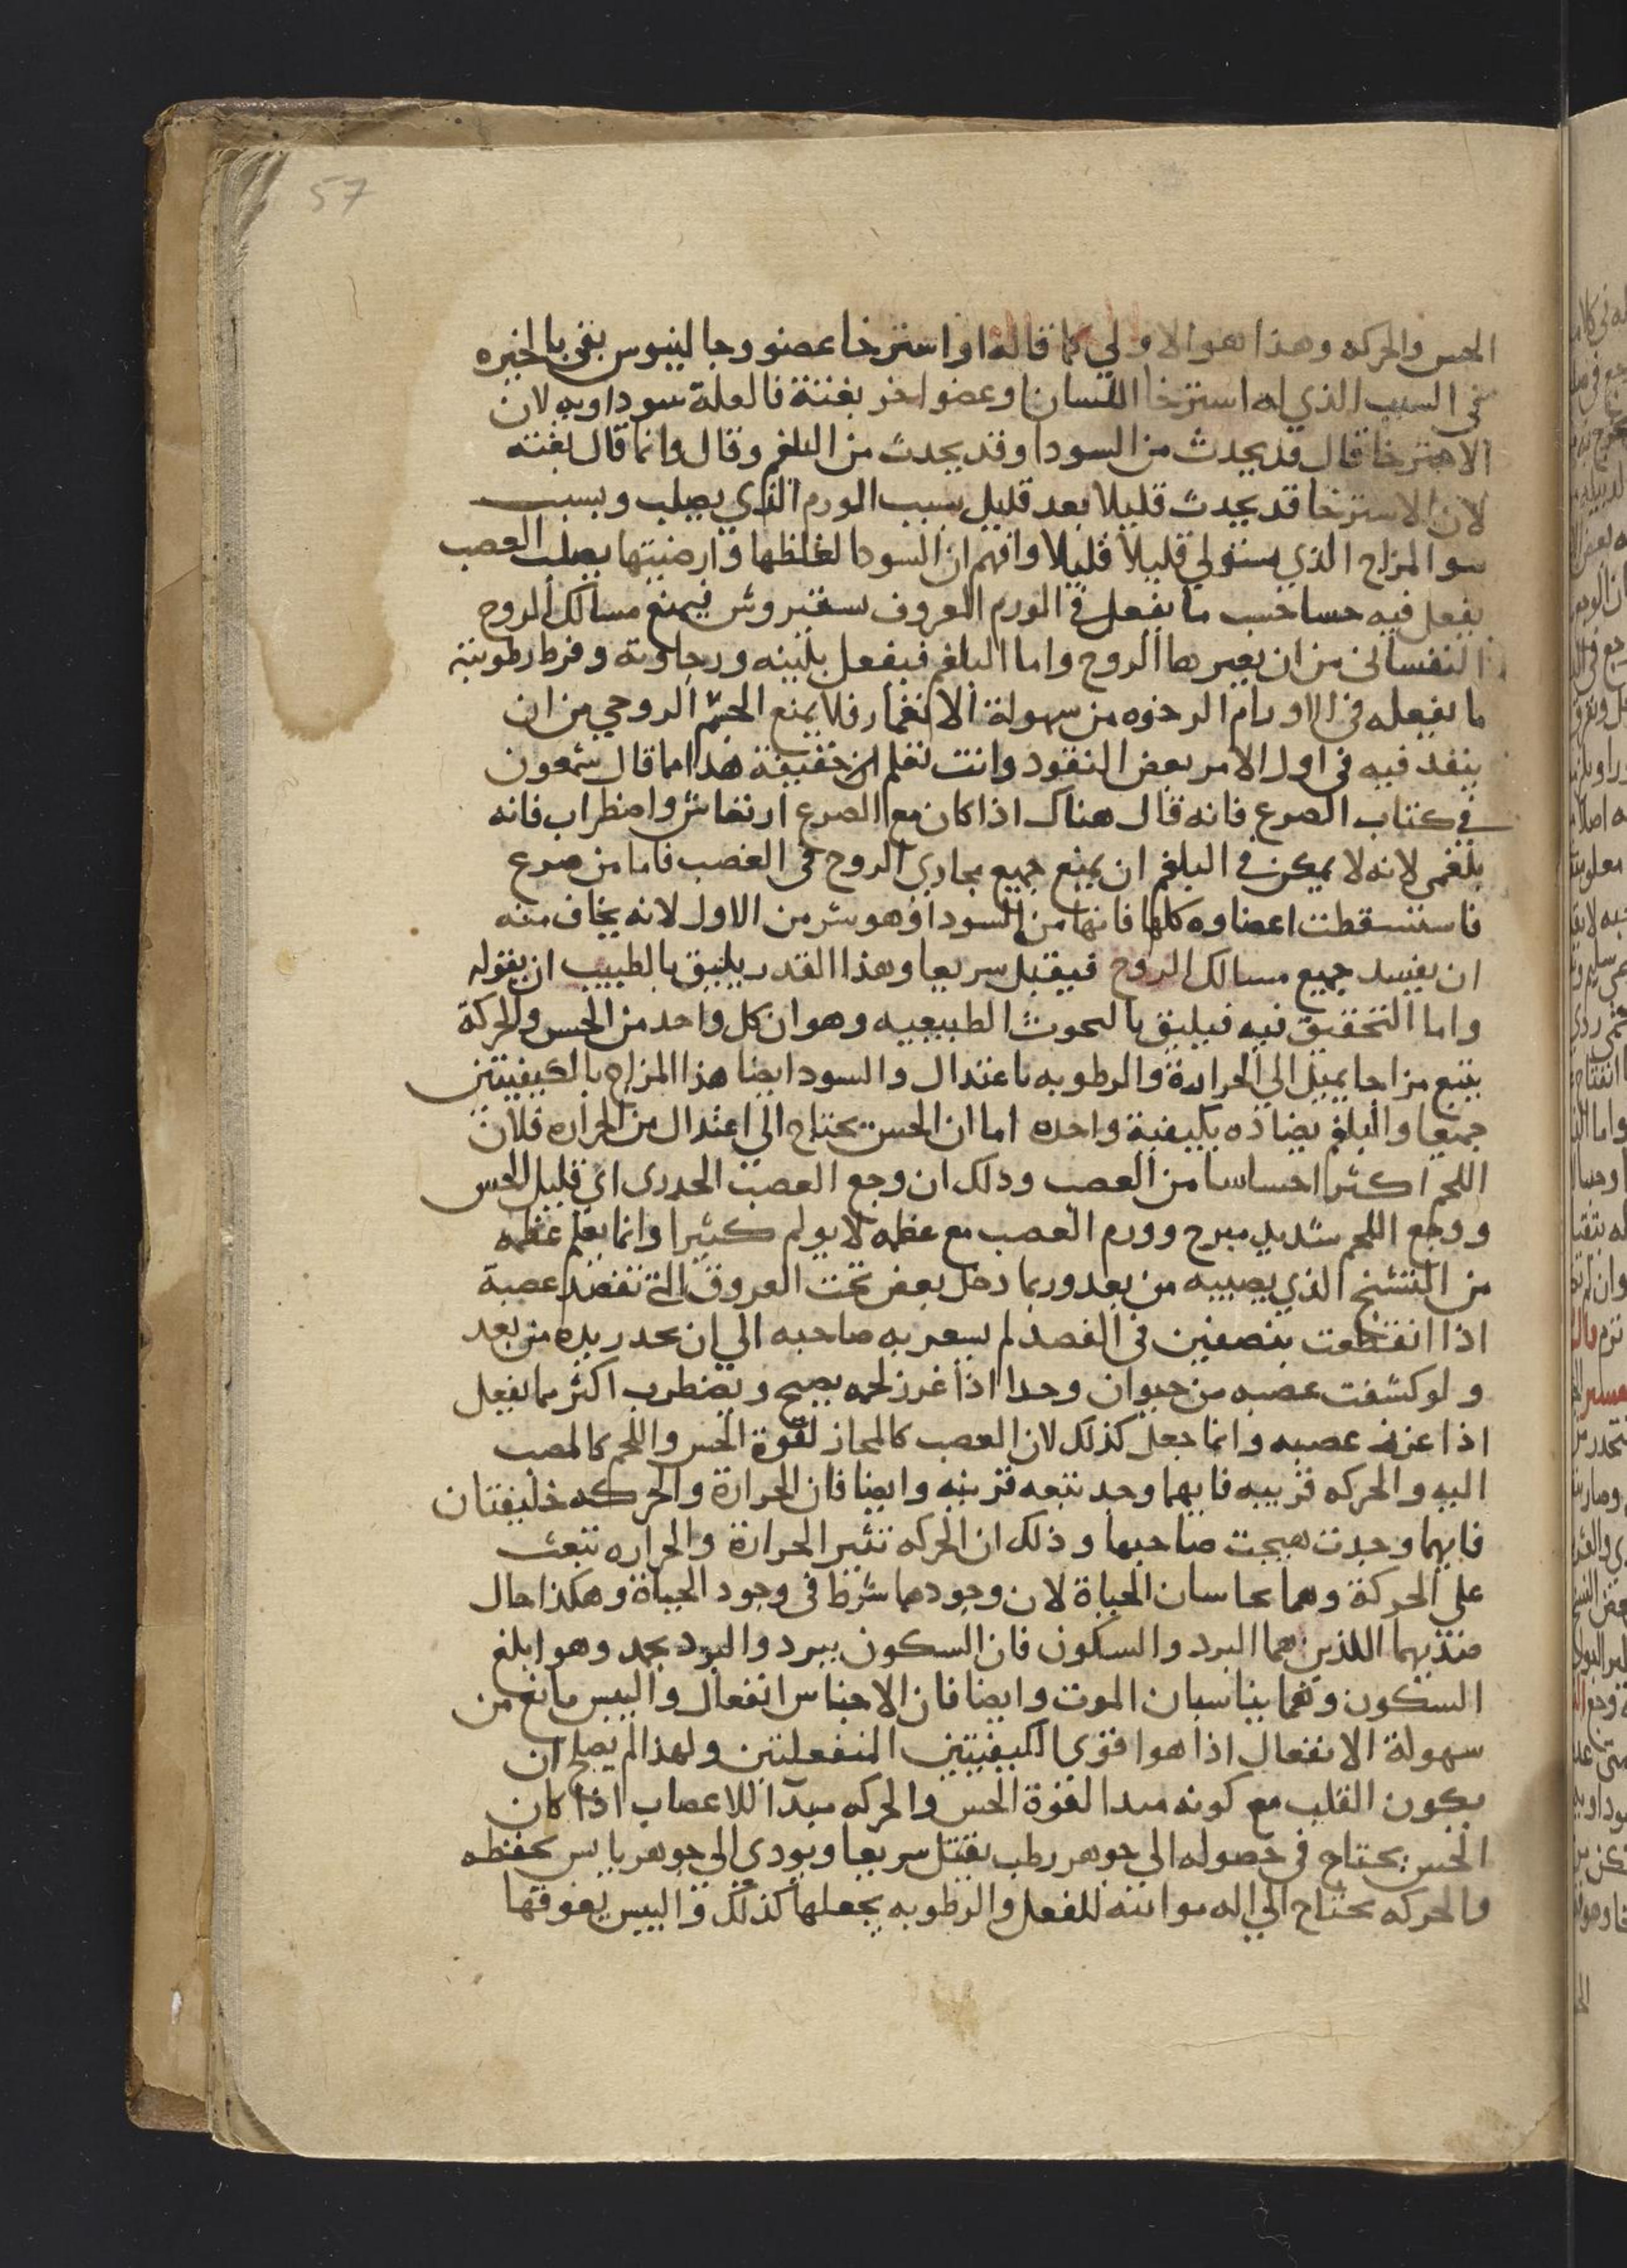 57
الحس والحركه وهذا هو الاولي كما قاله او استرخا عضو وجالينوس بقي بالخيره
في السبب الذي له استرخا اللسان او عضو اخر بغتة فالعلة سوداويه لان
الاسترخا قال قد يحدث من السودا وقد يحدث من البلغم وقال وانما قال بغته
لان الاسترخا قد يحدث قليلا بعد قليل بسبب الورم الذي يصلب وبسبب
سو المزاج الذي يستولي قليلا قليلا وافهم ان السودا لغلظها وارضيتها بصلب العصب
يفعل فيه حسا حسب ما يفعل في الورم المعروف سقيروس فيمنع مسالك الروح
النفساني من ان يعبر بها الروح واما البلغم فيفعل بلينه ورخاوته وفرط رطوبته
ما يفعله في الاورام الرخوه من سهولة الانغمار فلا يمنع الجسم الروحي من ان
ينفد فيه في اول الامر بعض النفود وانت تعلم ان حقيقة هذا مما قال شمعون
في كتاب الصرع فانه قال هناك اذا كان مع الصرع ارتعاش واضطراب فانه
بلغمي لانه لا يمكن في البلغم ان يمنع جميع مجاري الروح في العصب فاما من صرع
فاستسقطت اعضاوه كلها فانها من السودا وهو شر من الاول لانه يخاف منه
ان يفسد جميع مسالك الروح فيقتل سريعا وهذا القدر يليق بالطبيب ان يقوله
واما التحقيق فيه فيليق بالبحوث الطبيعيه وهو ان كل واحد من الحس والحركة
يتبع مزاجا يميل الي الحرارة والرطوبه باعتدال والسودا يضاد هذا المزاج بالكيفيتين
جميعا والبلغم يضاده بكيفية واحده اما ان الحس يحتاج الي اعتدال من الحراره فلان
اللحم اكثر احساسا من العصب ودلك ان وجع العصب الخدري اي قليل الحس
ووجع اللحم شديد مبرح وورم العصب مع عظمه لا يولم كثيرا وانما يعلم عظمه
من التشنج الذي يصيبه من بعد وربما دخل بعض تحت العروق التي تفصد عصبة
اذا انقطعت بنصفين في الفصد لم يسعر به صاحبه الي ان يخدر يده من بعد
ولو كشفت عصبه من حيوان وحدا اذا غرز لحمه يصيح ويضطرب اكثر مما يفعل
اذا غرز عصبه وانما جعل كذلك لان العصب كالمجاز لقوة الحس واللحم كالمصب
اليه والحركه قريبه فايهما وجد تتبعه قرينه وايضا فان الحرارة والحركه خليفتان
فايهما وجدت هيجت صاحبها وذلك ان الحركه تثير الحرارة والحراره تبعث
علي الحركة وهما يجاسان الحياة لان وجودهما شرط في وجود الحياة وهكذا حال
ضديهما اللذين هما البرد والسكون فان السكون يبرد والبرد يجمد وهو ابلغ
السكون وهما يناسبان الموت وايضا فان الاحساس انفعال واليبس مانع من
سهولة الانفعال اذا هو اقوي الكيفيتين المنفعلتين ولهذا لم يصلح ان
يكون القلب مع كونه مبدا لقوة الحس والحركه مبدآ للاعصاب اذا كان
الحس يحتاج في حصوله الي جوهر رطب يقبل سريعا ويودي الي جوهر يابس يحفظه
والحركه تحتاج الي اله مواتيه للفعل والرطوبه يجعلها كذلك واليبس يعوقها